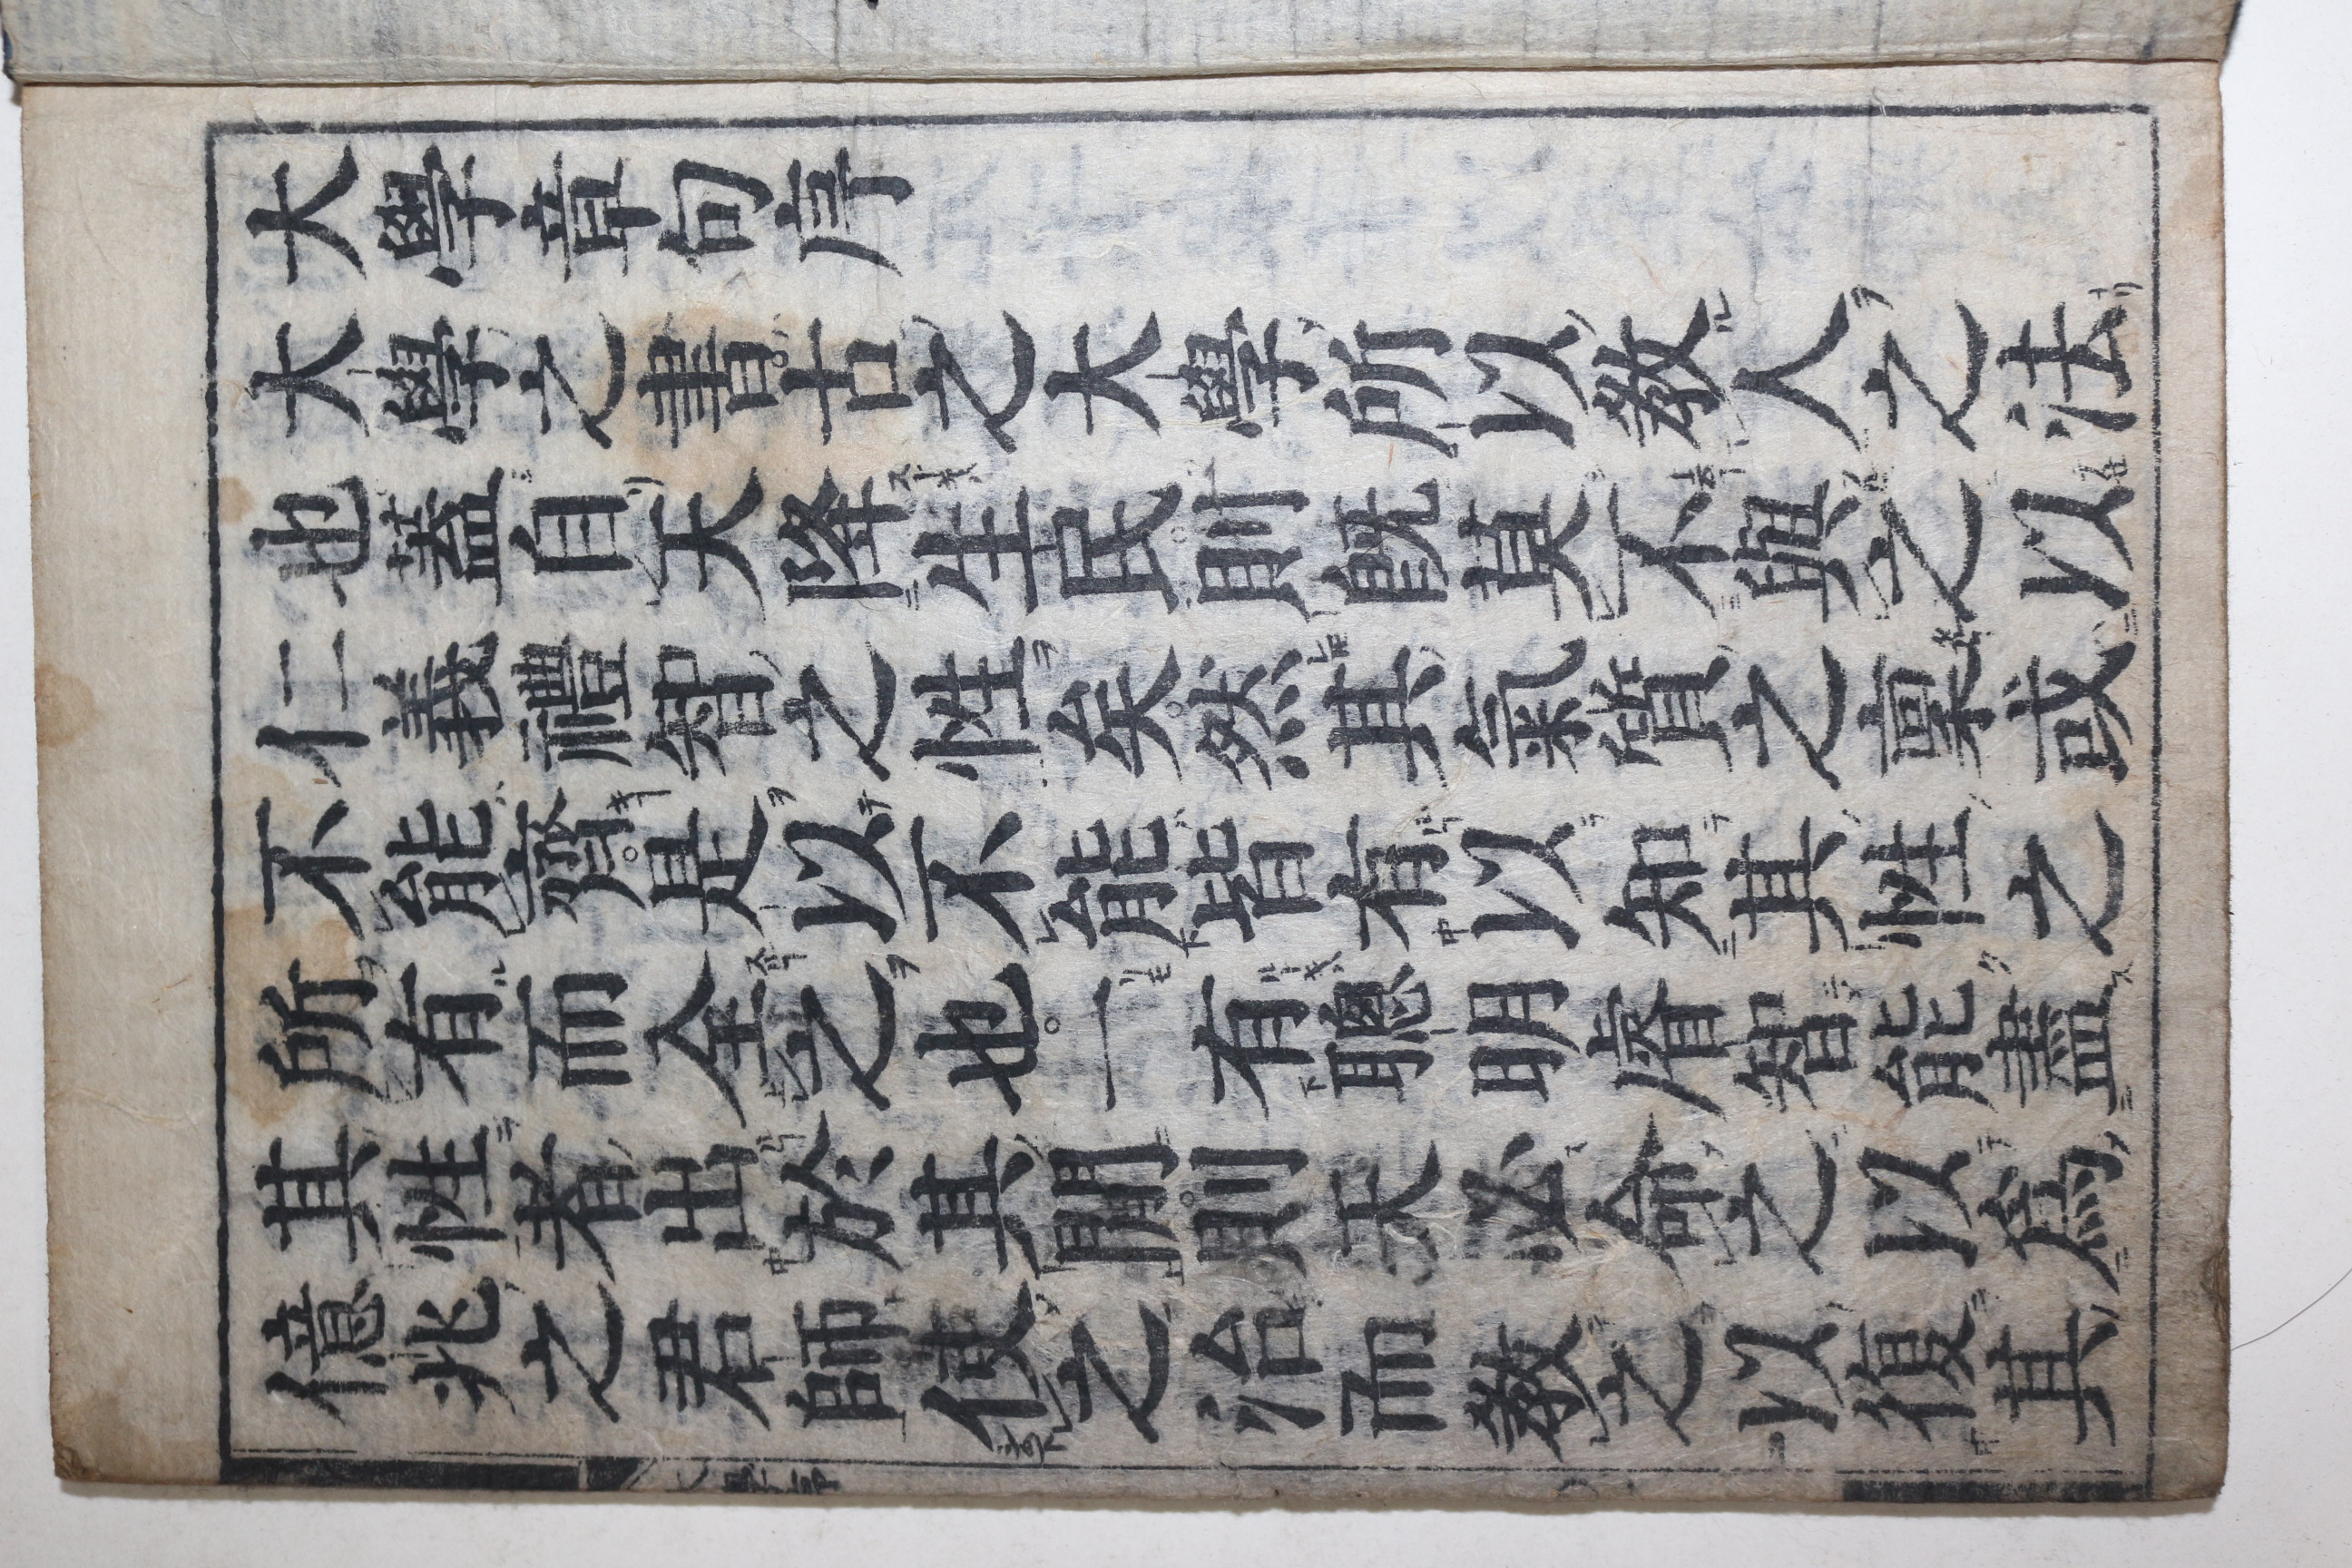 大學章句序
大學之書古之大學所以敎人之法
也蓋自天降生民則旣莫不與之以
仁義禮智之性矣然其氣質之稟或
不能齊是以不能皆有以知其性之
所有而全之也一有聰明睿智能盡
其性者出於其閒則天必命之以爲
億兆之君師使之治而敎之以復其